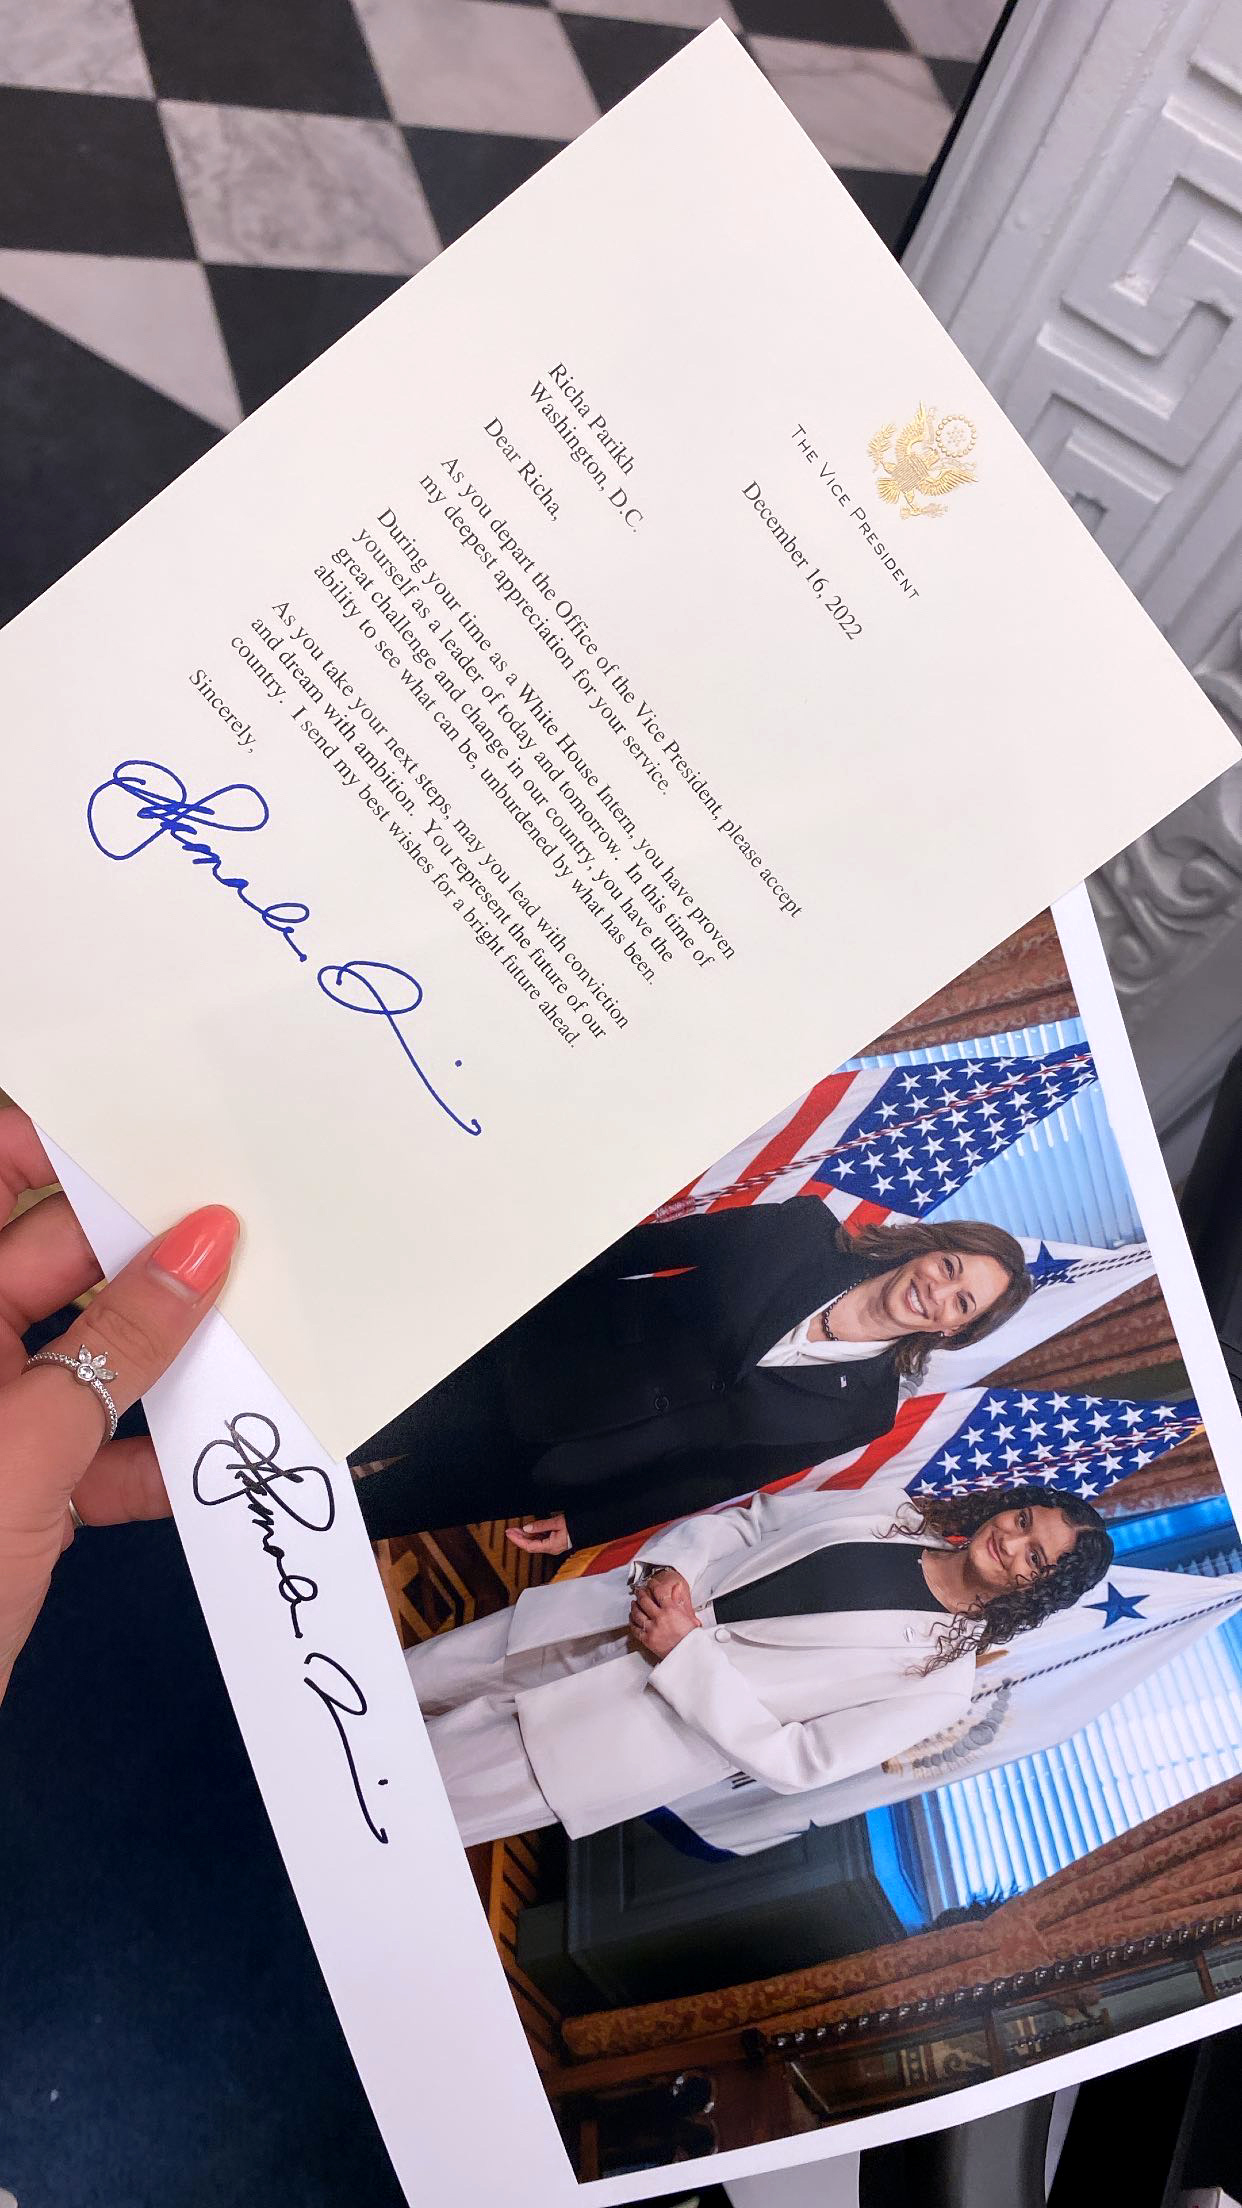 THE VICE PRESIDENT
December 16, 2022
Richa Parikh
Washington, D.C.
Dear Richa,
As you depart the Office of the Vice President, please accept
my deepest appreciation for your service.
During your time as a White House Intern, you have proven
yourself as a leader of today and tomorrow. In this time of
great challenge and change in our country, you have the
ability to see what can be, unburdened by what has been.
As you take your next steps, may you lead with conviction
and dream with ambition. You represent the future of our
country. I send my best wishes for a bright future ahead.
Sincerely,